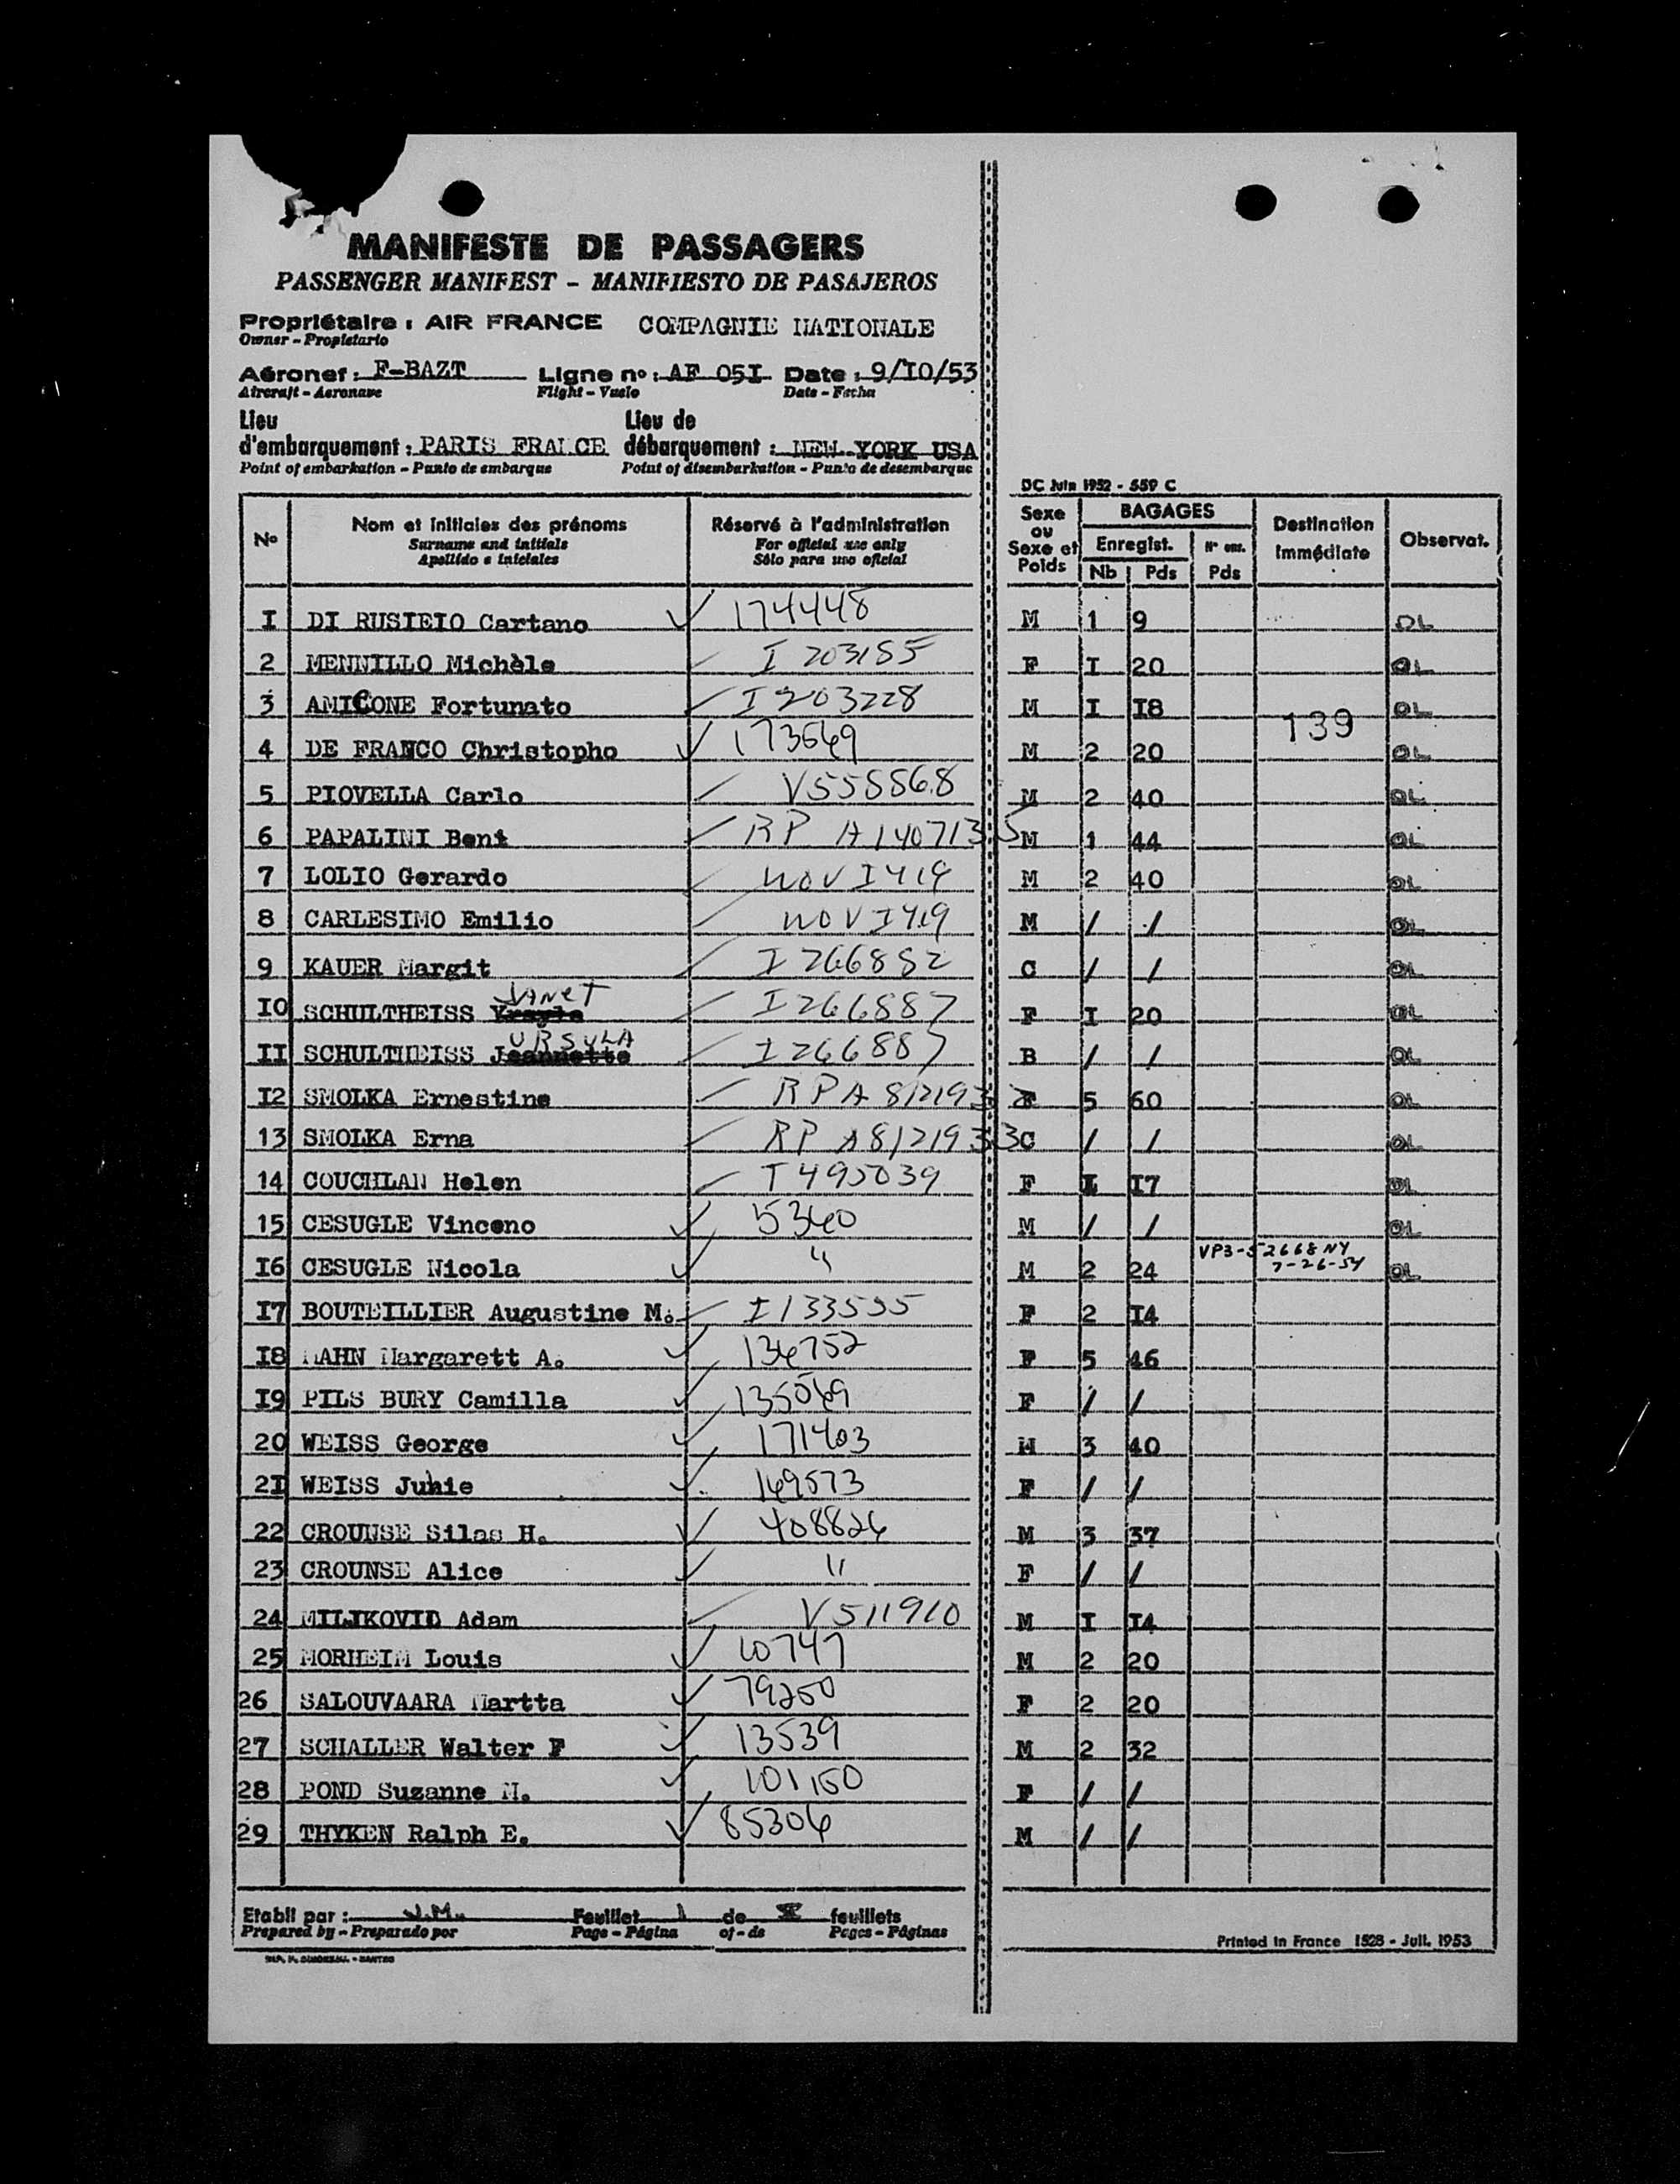 MANIFESTE DE PASSAGERS
PASSENGER MANIFEST - MANIFIESTO DE PASAJEROS
Propriétaire : AIR FRANCE COMPAGNIE NATIONALE
Owner - Propietario
Aéronef : F-BAZT Ligne no : AF 05I Date : 9/IO/53
Aircraft - Aeronave Flight - Vuelo Date - Fecha
Lieu Lieu de
d'embarquement : PARIS FRANCE débarquement : NEW YORK USA
Point of embarkation - Punto de embarque Point of disembarkation - Punto de desembarque
DC Juin 1952 - 559 C
No Nom et initiales des prénoms Réservé à l'administration Sexe ou Sexe et Poids BAGAGES Destination immédiate Observat.
Surname and initials For official use only Enregist.
Apellido e iniciales Sólo para uso oficial Nb Pds Pds
I DI RUSIEIO Cartano 174448 M 1 9 OL
2 MENNILLO Michèle I 203185 F I 20 OL
3 AMICONE Fortunato I 203228 M I I8 OL
139
4 DE FRANCO Christopho 173649 M 2 20 OL
5 PIOVELLA Carlo V558868 M 2 40 OL
6 PAPALINI Beni RP A1407135 M 1 44 OL
7 LOLIO Gerardo NOV I419 M 2 40 OL
8 CARLESIMO Emilio NOV I419 M / / OL
9 KAUER Margit I 266882 C / / OL
IO SCHULTHEISS JANET I 266887 F I 20 OL
II SCHULTHEISS Jeannette URSULA I 266887 B / / OL
I2 SMOLKA Ernestine RP A8121932 F 5 60 OL
13 SMOLKA Erna RP A8121933 C / / OL
14 COUCHLAN Helen T 495039 F I I7 OL
15 CESUGLE Vinceno 15360 M / / OL
VP3-52668 NY
7-26-54
I6 CESUGLE Nicola " M 2 24 OL
I7 BOUTEILLIER Augustine M. I 133555 F 2 I4
I8 HAHN Margarett A. 136752 F 5 46
I9 PILS BURY Camilla 135069 F / /
20 WEISS George 171603 M 3 40
2I WEISS Juhie 169573 F / /
22 CROUNSE Silas H. 408826 M 3 37
23 CROUNSE Alice " F / /
24 MILIKOVID Adam V511910 M I I4
25 MORHEIM Louis 10747 M 2 20
26 SALOUVAARA Martta 79250 F 2 20
27 SCHALLER Walter F 13539 M 2 32
28 POND Suzanne M. 101150 F / /
29 THYKEN Ralph E. 85306 M / /
Etabli par : J.M. Feuillet 1 de feuillets
Prepared by - Preparado por Page - Página of - de Pages - Páginas
Printed in France 1528 - Juil. 1953